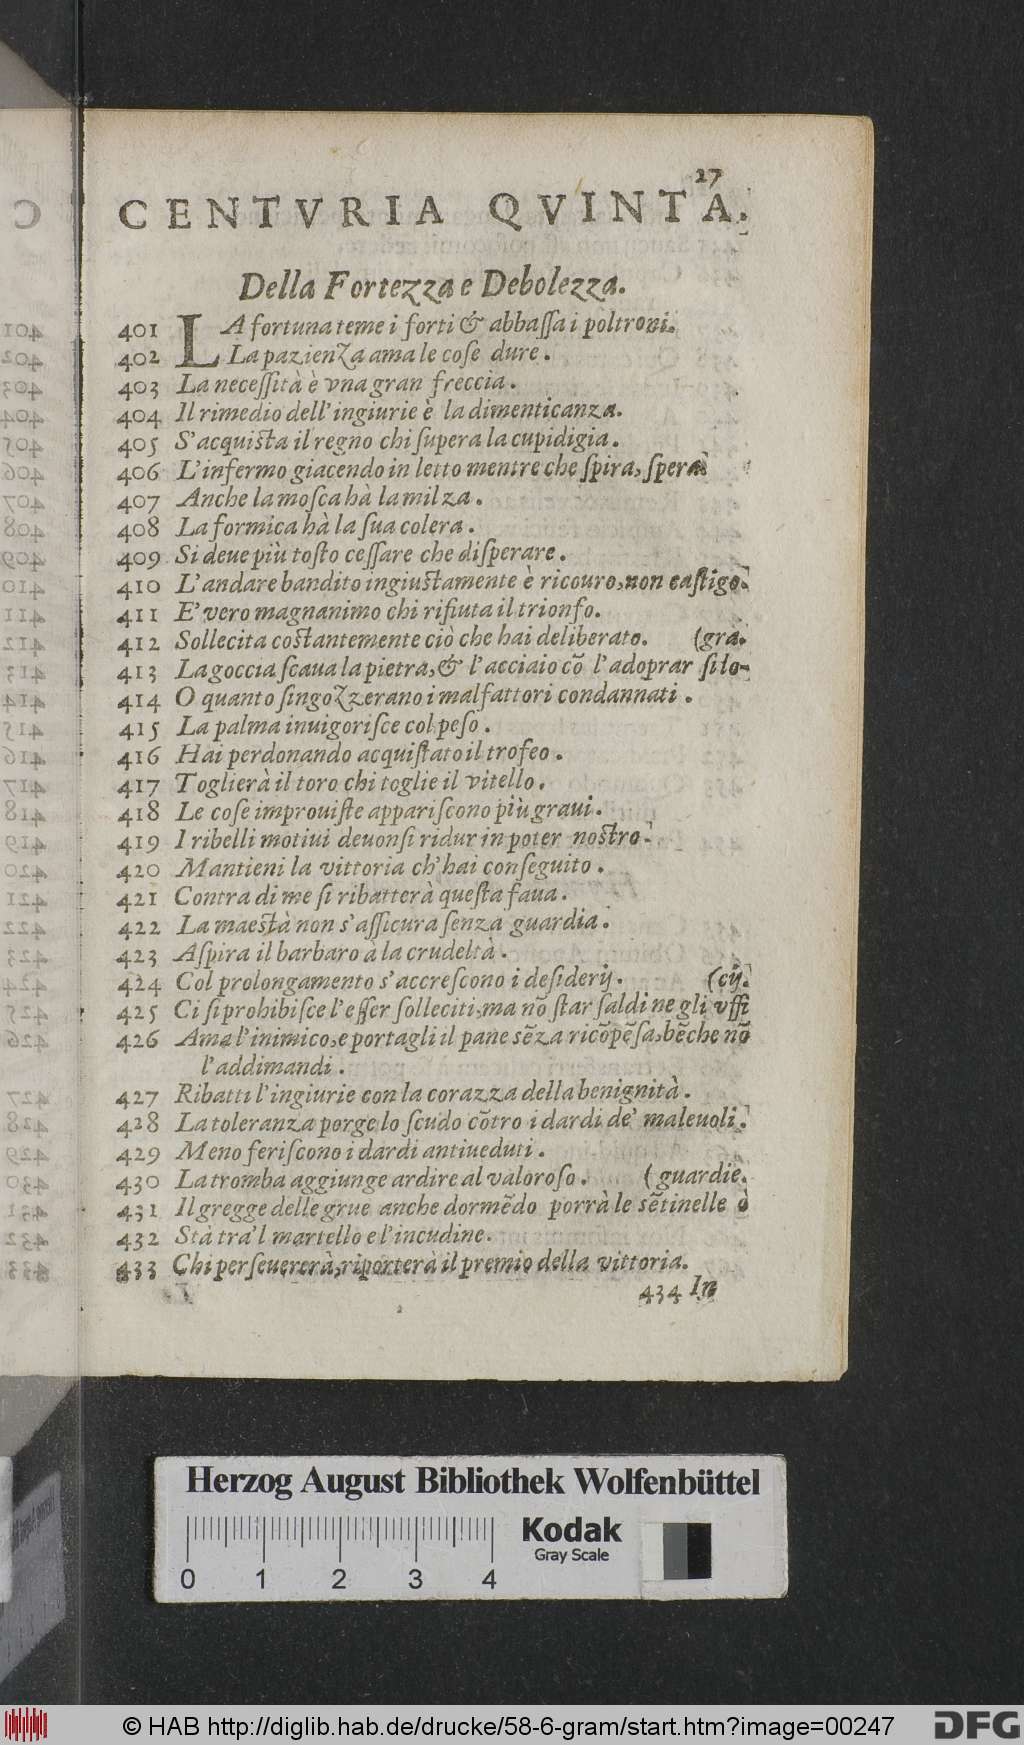 27
CENTVRIA QVINTA.
Della Fortezza e Debolezza.
401 LA fortuna teme i forti & abbaſſa i poltroni.
402 La pazienza ama le coſe dure.
403 La neceſſità è vna gran freccia.
404 Il rimedio dell'ingiurie è la dimenticanza.
405 S'acquista il regno chi ſupera la cupidigia.
406 L'infermo giacendo in letto mentre che ſpira, ſpera
407 Anche la moſca hà la milza.
408 La formica hà la ſua colera.
409 Si deue più toſto ceſſare che diſperare.
410 L'andare bandito ingiustamente è ricouro, non caſtigo.
411 E' vero magnanimo chi rifiuta il trionfo.
412 Sollecita costantemente ciò che hai deliberato. (gra.
413 La goccia ſcaua la pietra, & l'acciaio cõ l'adoprar ſi lo-
414 O quanto ſingozzerano i malfattori condannati.
415 La palma inuigoriſce col peſo.
416 Hai perdonando acquiſtato il trofeo.
417 Toglierà il toro chi toglie il vitello.
418 Le coſe improuiſte appariſcono più graui.
419 I ribelli motiui deuonſi ridur in poter nostro.
420 Mantieni la vittoria ch'hai conſeguito.
421 Contra di me ſi ribatterà queſta faua.
422 La maestà non s'aſſicura ſenza guardia.
423 Aſpira il barbaro à la crudeltà.
424 Col prolongamento s'accreſcono i deſiderij. (cij.
425 Ci ſi prohibiſce l'eſſer ſolleciti, ma nõ ſtar ſaldi ne gli vffi
426 Ama l'inimico, e portagli il pane sẽza ricõpẽſa, bẽche nõ
l'addimandi.
427 Ribatti l'ingiurie con la corazza della benignità.
428 La toleranza porge lo ſcudo cõtro i dardi de' maleuoli.
429 Meno feriſcono i dardi antiueduti.
430 La tromba aggiunge ardire al valoroſo. (guardie.
431 Il gregge delle grue anche dormẽdo porrà le sẽtinelle ò
432 Stà tra'l martello e l'incudine.
433 Chi perſeuererà, riporterà il premio della vittoria.
434 In
Herzog August Bibliothek Wolfenbüttel
Kodak
Gray Scale
0 1 2 3 4
© HAB http://diglib.hab.de/drucke/58-6-gram/start.htm?image=00247
DFG